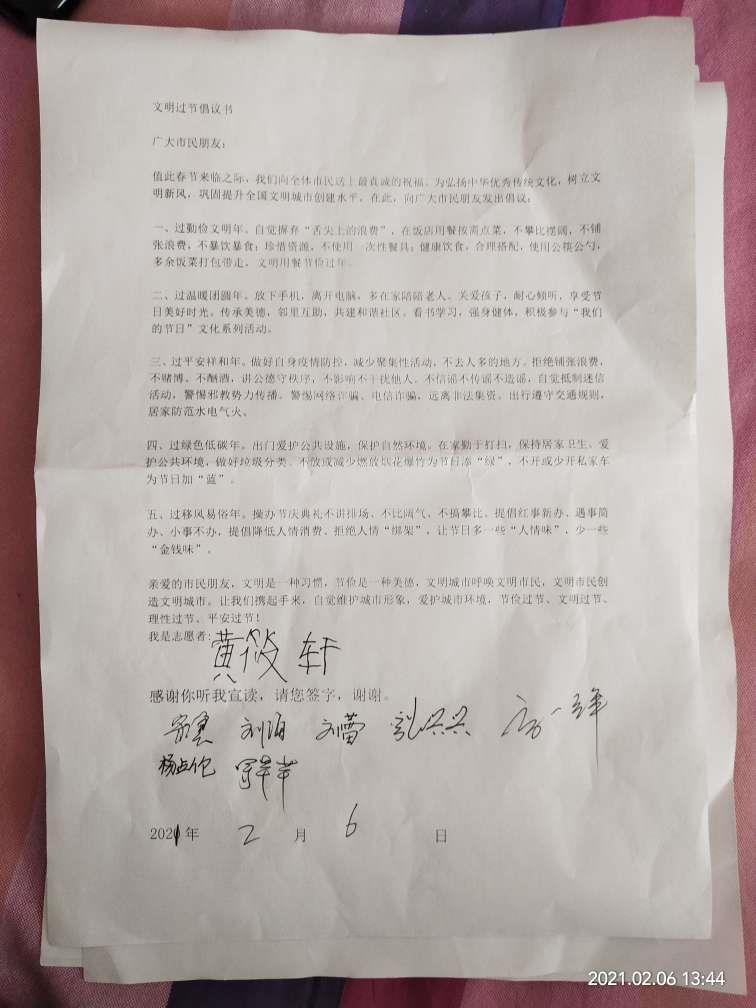 文明过节倡议书
广大市民朋友：
值此春节来临之际，我们向全体市民送上最真诚的祝福。为弘扬中华优秀传统文化，树立文
明新风，巩固提升全国文明城市创建水平。在此，向广大市民朋友发出倡议：
一、过勤俭文明年。自觉摒弃“舌尖上的浪费”，在饭店用餐按需点菜，不攀比摆阔，不铺
张浪费，不暴饮暴食；珍惜资源，不使用一次性餐具；健康饮食，合理搭配，使用公筷公勺，
多余饭菜打包带走，文明用餐节俭过年。
二、过温暖团圆年。放下手机，离开电脑，多在家陪陪老人。关爱孩子，耐心倾听，享受节
日美好时光。传承美德，邻里互助，共建和谐社区。看书学习，强身健体，积极参与“我们
的节日”文化系列活动。
三、过平安祥和年。做好自身疫情防控，减少聚集性活动，不去人多的地方。拒绝铺张浪费，
不赌博、不酗酒，讲公德守秩序，不影响不干扰他人。不信谣不传谣不造谣，自觉抵制迷信
活动，警惕邪教势力传播。警惕网络诈骗、电信诈骗，远离非法集资。出行遵守交通规则，
居家防范水电气火。
四、过绿色低碳年。出门爱护公共设施，保护自然环境。在家勤于打扫，保持居家卫生。爱
护公共环境，做好垃圾分类。不放或减少燃放烟花爆竹为节日添“绿”，不开或少开私家车
为节日加“蓝”。
五、过移风易俗年。操办节庆典礼不讲排场、不比阔气、不搞攀比。提倡红事新办、遇事简
办、小事不办，提倡降低人情消费、拒绝人情“绑架”，让节日多一些“人情味”，少一些
“金钱味”。
亲爱的市民朋友，文明是一种习惯，节俭是一种美德，文明城市呼唤文明市民，文明市民创
造文明城市。让我们携起手来，自觉维护城市形象，爱护城市环境，节俭过节、文明过节、
理性过节、平安过节！
我是志愿者：黄筱轩
感谢你听我宣读，请您签字，谢谢。
刘蕾
2021年 2 月 6 日
2021.02.06 13:44